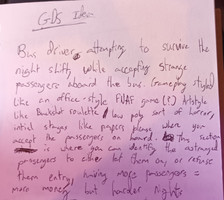 GDS Idea
Bus driver attempting to survive the
night shift, while accepting strange
passengers aboard the bus. Gameplay styled
like an office-style FNAF game (?) Artstyle
like Buckshot roulette low poly sort of horror,
initial stages like papers please where you
accept the passengers on board this section
is where you can identify the estranged
passengers to either let them on, or refuse
them entry, having more passengers =
more money but harder night